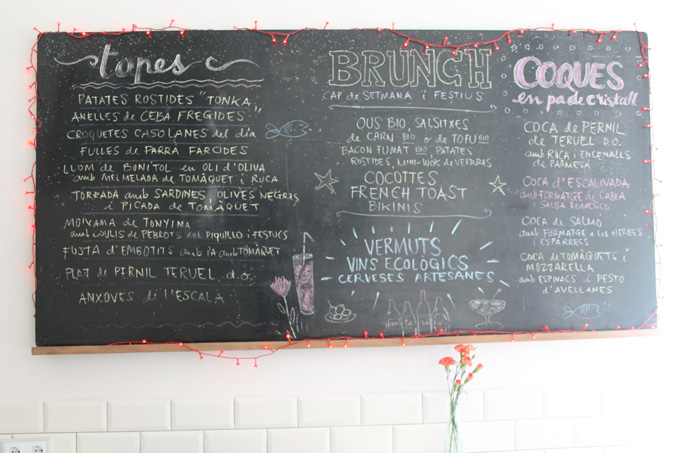 topes
PATATES ROSTIDES "TONKA"
ANELLES de CEBA FREGIDES
CROQUETES CASOLANES del dia
FULLES de PARRA FARCIDES
LLOM de BONÍTOL en OLI d'OLIVA
amb MELMELADA de TOMÀQUET i RUCA
TORRADA amb SARDINES, OLIVES NEGRES
i PICADA de TOMÀQUET
MOIXAMA de TONYINA
amb COULIS de PEBROTS del PIQUILLO i FESTUCS
FUSTA d'EMBOTITS amb PA amb TOMÀQUET
PLAT de PERNIL TERUEL d.o.
ANXOVES de L'ESCALA
BRUNCH
CAP de SETMANA i FESTIUS
OUS BIO, SALSITXES
de CARN BIO o de TOFU BIO
BACON FUMAT BIO, PATATES
ROSTIDES, MINI-WOK de VERDURES
COCOTTES
FRENCH TOAST
BIKINIS
VERMUTS
VINS ECOLÒGICS
CERVESES ARTESANES
COQUES
en pa de cristall
COCA de PERNIL
de TERUEL D.O.
amb RUCA i ENCENALLS
de PARMESÀ
COCA d'ESCALIVADA
amb FORMATGE de CABRA
i SALSA ROMESCO
COCA de SALMÓ
amb FORMATGE a les HERBES
i ESPÀRRECS
COCA de TOMÀQUETS i
MOZZARELLA
amb ESPINACS i PESTO
d'AVELLANES